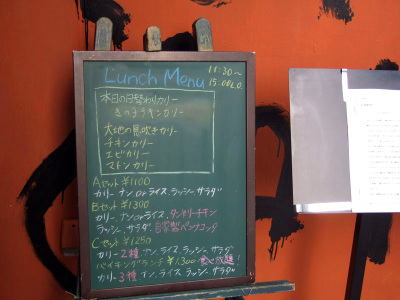 Lunch Menu
11:30〜
15:00 L.O.
本日の日替わりカリー
きのこチキンカリー
大地の息吹きカリー
チキンカリー
エビカリー
マトンカリー
Aセット ¥1100
カリー ナン or ライス, ラッシー, サラダ
Bセット ¥1300
カリー ナン or ライス, タンドリーチキン
ラッシー, サラダ, 自家製パンナコッタ
Cセット ¥1250
カリー2種, ナン, ライス, ラッシー, サラダ
バイキングランチ ¥1300 食べ放題!
カリー3種 ナン, ライス, ラッシー, サラダ